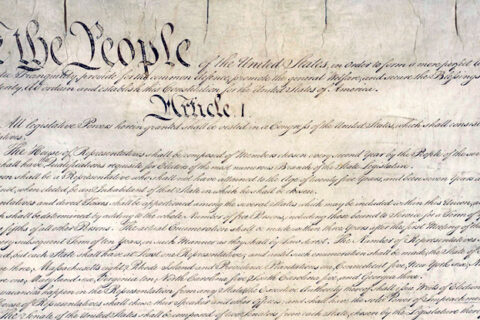 the People
of the United States, in Order to form a more perfect
Tranquility, provide for the common defence, promote the general Welfare, and secure the Blessings
do ordain and establish this Constitution for the United States of America.
Article. I.
All legislative Powers herein granted shall be vested in a Congress of the United States, which shall consist
The House of Representatives shall be composed of Members chosen every second Year by the People of the
shall have Qualifications requisite for Electors of the most numerous Branch of the State Legislature.
shall be a Representative who shall not have attained to the Age of twenty five Years, and been seven Years a Citizen
and who shall not, when elected, be an Inhabitant of that State in which he shall be chosen.
and direct Taxes shall be apportioned among the several States which may be included within this Union,
shall be determined by adding to the whole Number of free Persons, including those bound to Service for a Term of
fifths of all other Persons. The actual Enumeration shall be made within three Years after the first Meeting of the
subsequent Term of ten Years, in such Manner as they shall by Law direct. The Number of Representatives
but each State shall have at Least one Representative; and until such enumeration shall be made, the State of
three, Massachusetts eight, Rhode Island and Providence Plantations one, Connecticut five, New York six,
Maryland six, Virginia ten, North Carolina five, South Carolina five, and Georgia three.
vacancies happen in the Representation from any State, the Executive Authority thereof shall issue Writs of Election
House of Representatives shall chuse their Speaker and other Officers; and shall have the sole Power of Impeachment.
The Senate of the United States shall be composed of two Senators from each State, chosen by the Legislature